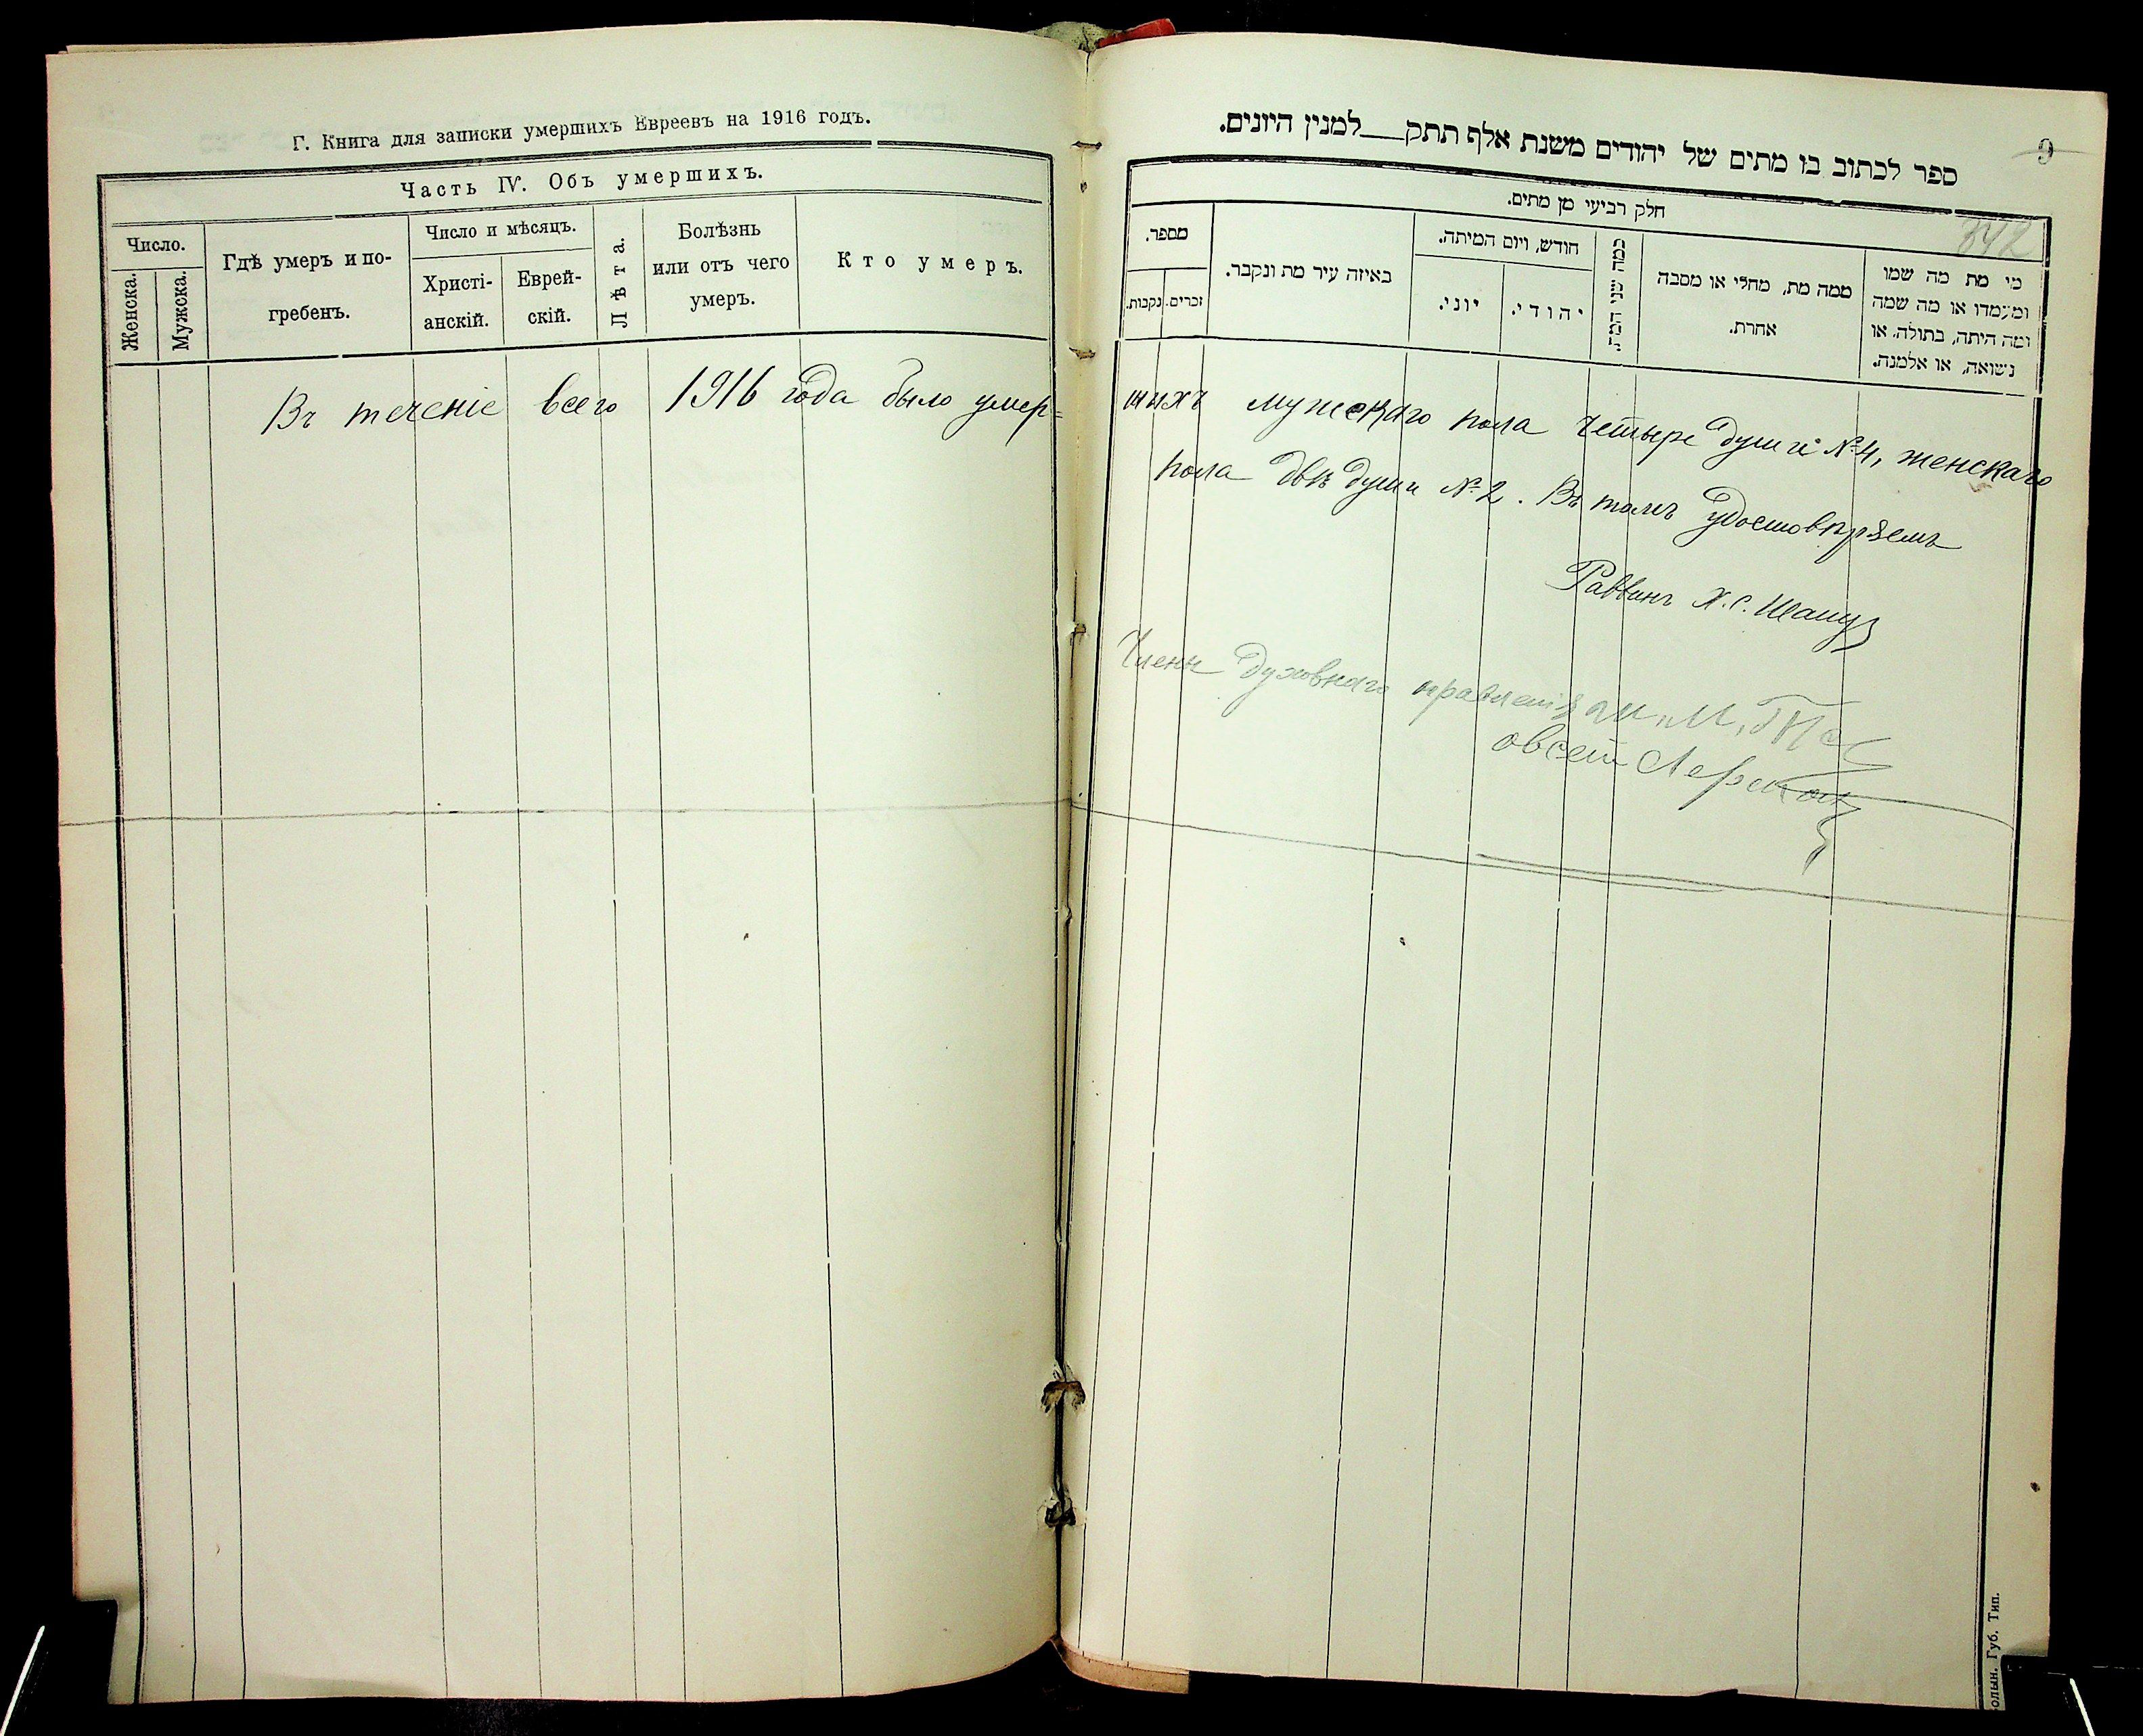 Г. Книга для записки умершихъ Евреевъ на 1916 годъ.
Часть IV. Объ умершихъ.
Число.
Женска.
Мужска.
Гдѣ умеръ и по-
гребенъ.
Число и мѣсяцъ.
Христі-
анскій.
Еврей-
скій.
Лѣта.
Болѣзнь
или отъ чего
умеръ.
Кто умеръ.
Въ теченіе всего 1916 года было умер=
ספר לכתוב בו מתים של יהודים משנת אלף תתק למנין היונים.
9
342
חלק רביעי מן מתים.
מספר.
נקבות.
זכרים.
באיזה עיר מת ונקבר.
חודש, ויום המיתה.
יוני.
יהודי.
כמה שני המת.
ממה מת, מחלי או מסבה
אחרת.
מי מת מה שמו
ומעמדו או מה שמה
ומה היתה, בתולה, או
נשואה, או אלמנה.
шихъ мужскаго пола четыре души №4, женскаго
пола двѣ души №2. Въ томъ удостовѣряемъ
Раввинъ Х. С.
Члены духовнаго правленія
Овсей
Губ. Тип.